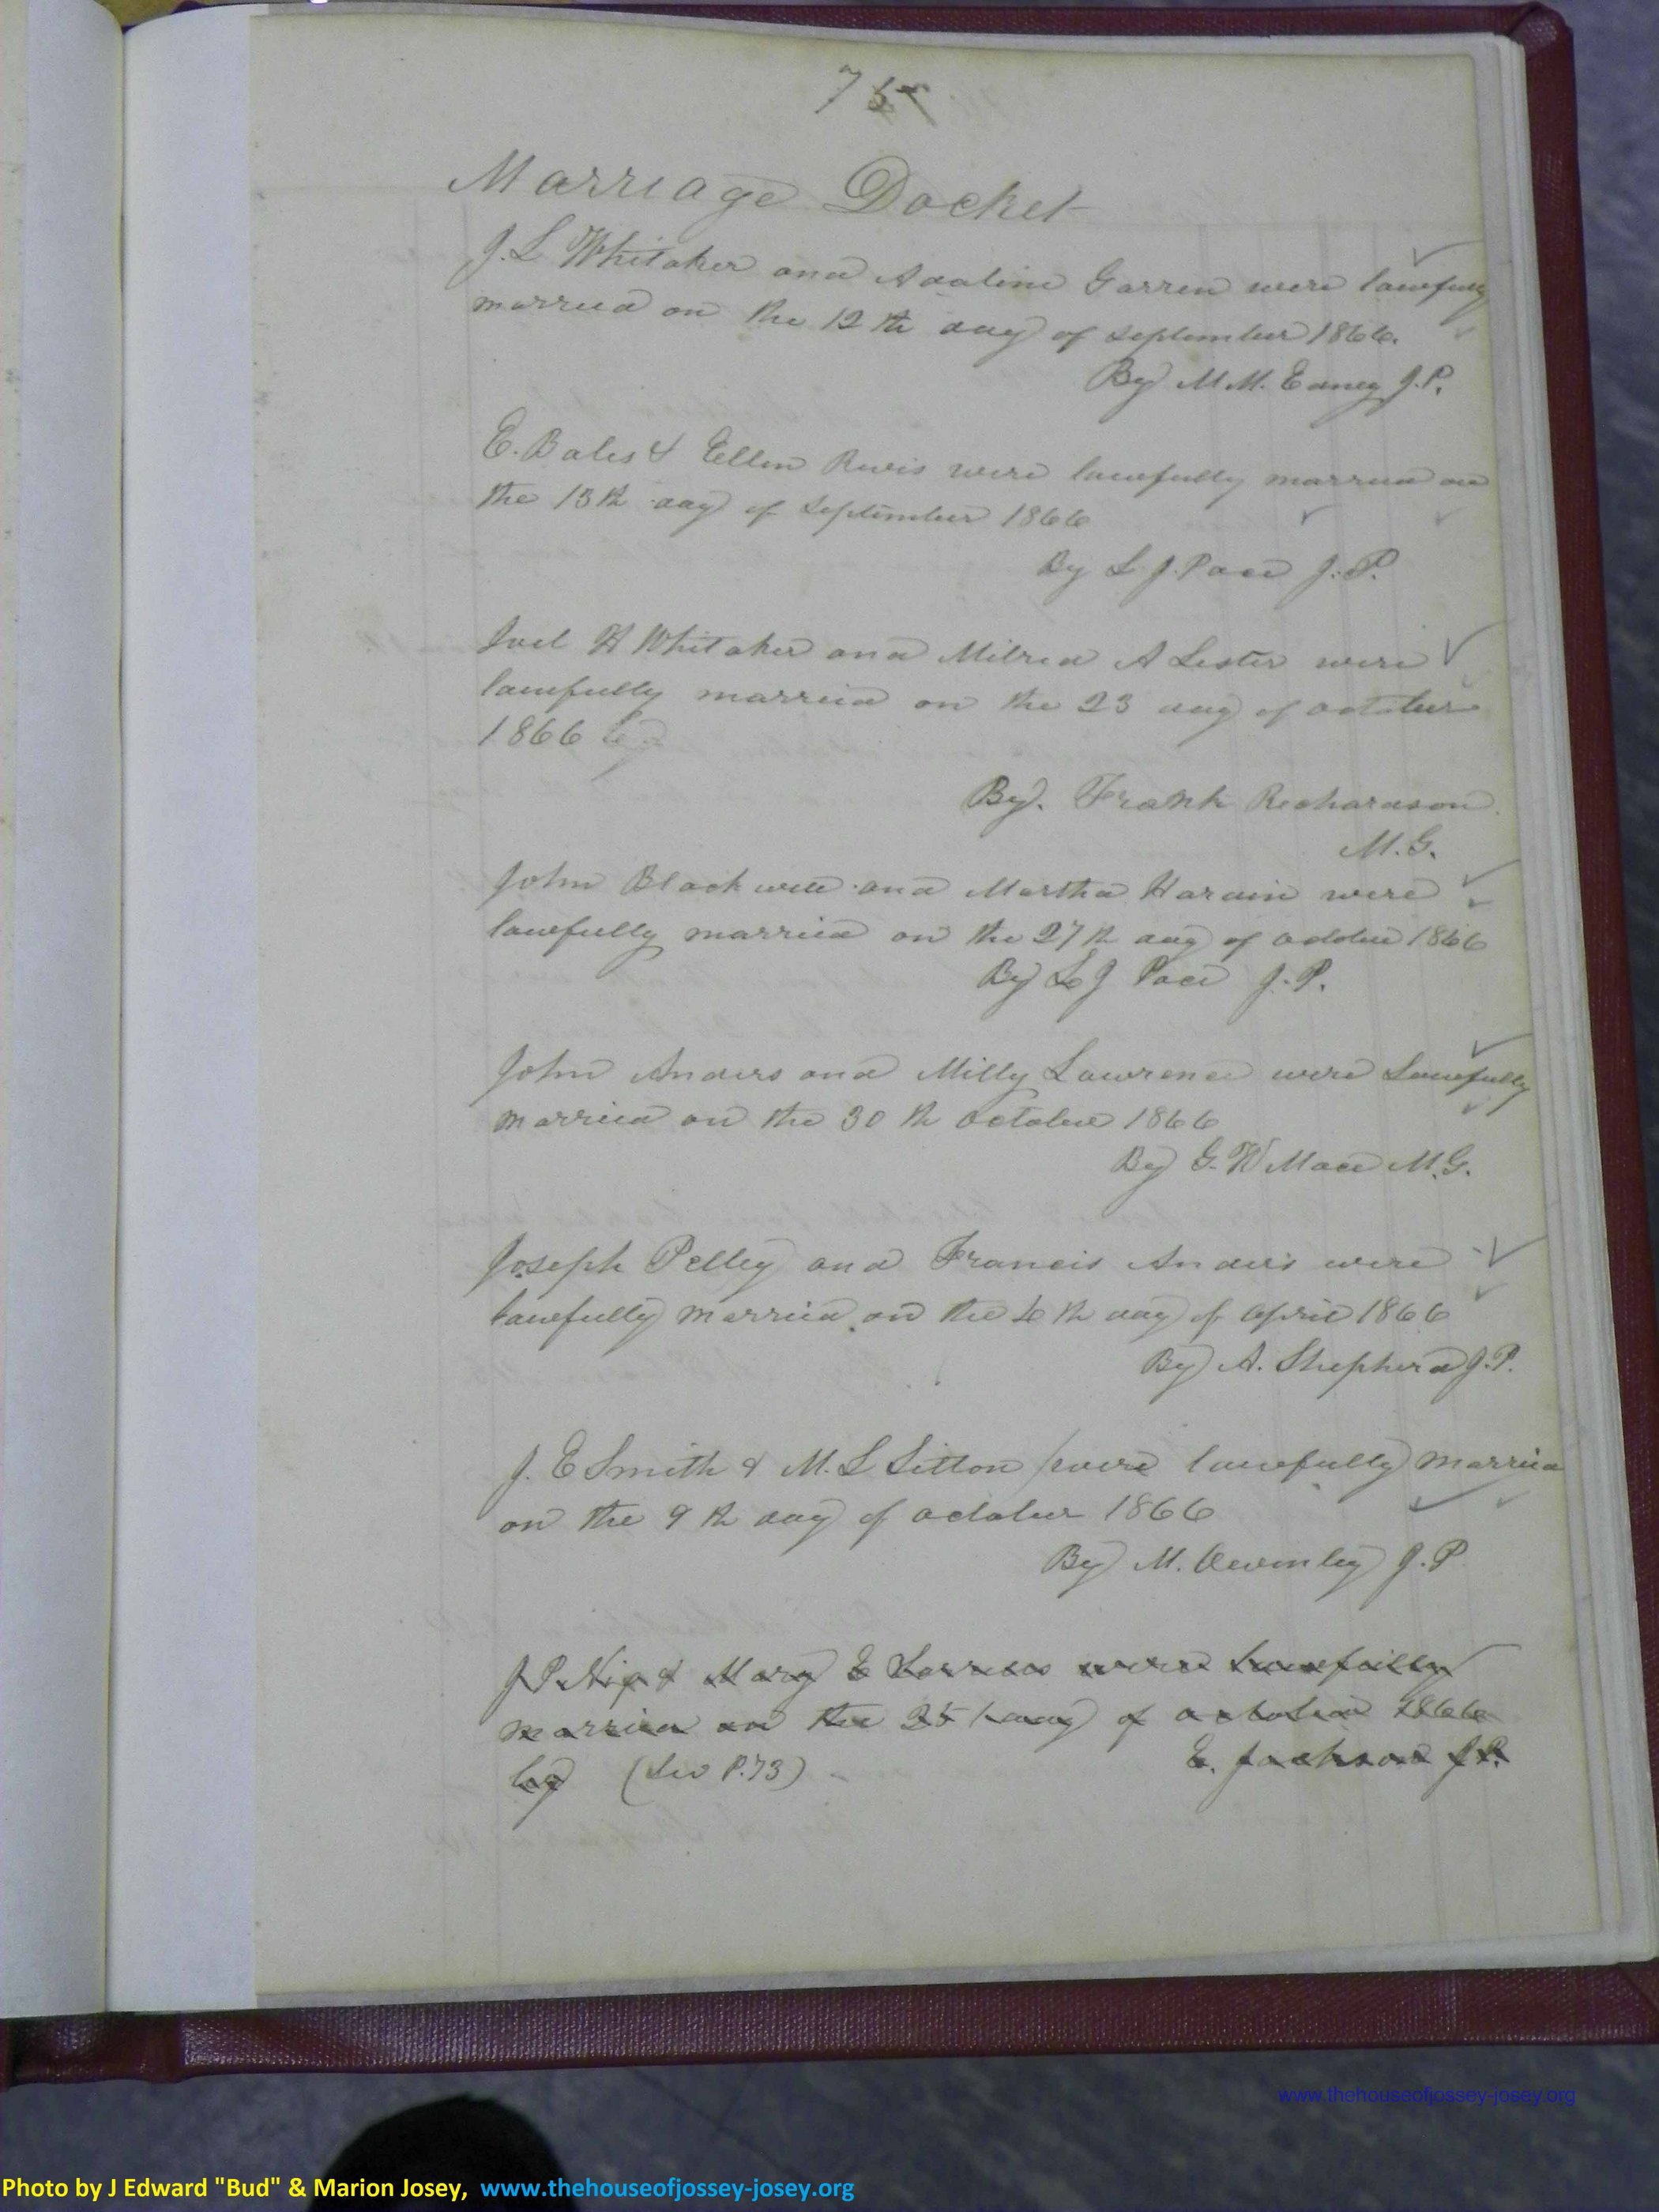 75
Marriage Docket
J. L Whitaker and Adaline Garren were lawfully
married on the 12th day of september 1866.
By M M. Edney J. P.
E. Bales & Ellen Revis were lawfully married on
the 13th day of september 1866
By L. J. Pace J. P.
Joel H Whitaker and Milred A Lester were
lawfully married on the 23 day of october
1866 by
By. Frank Richardson
M. G.
John Blackwell and Martha Hardin were
lawfully married on the 27th day of october 1866
By L J Pace J. P.
John Anders and Milly Lawrence were Lawfully
married on the 30th October 1866
By G. W Mace M. G.
Joseph Pelley and Francis Anders were
lawfully married on the day of April 1866
By A. Shepherd J. P.
J. E Smith & M. L Sitton were lawfully married
on the 9th day of october 1866
By M. J. P
J. P. & Mary E were lawfully
married on the 25 day of october 1866
by (See P. 73) E. Jackson J. P.
www.thehouseofjossey-josey.org
Photo by J Edward "Bud" & Marion Josey, www.thehouseofjossey-josey.org